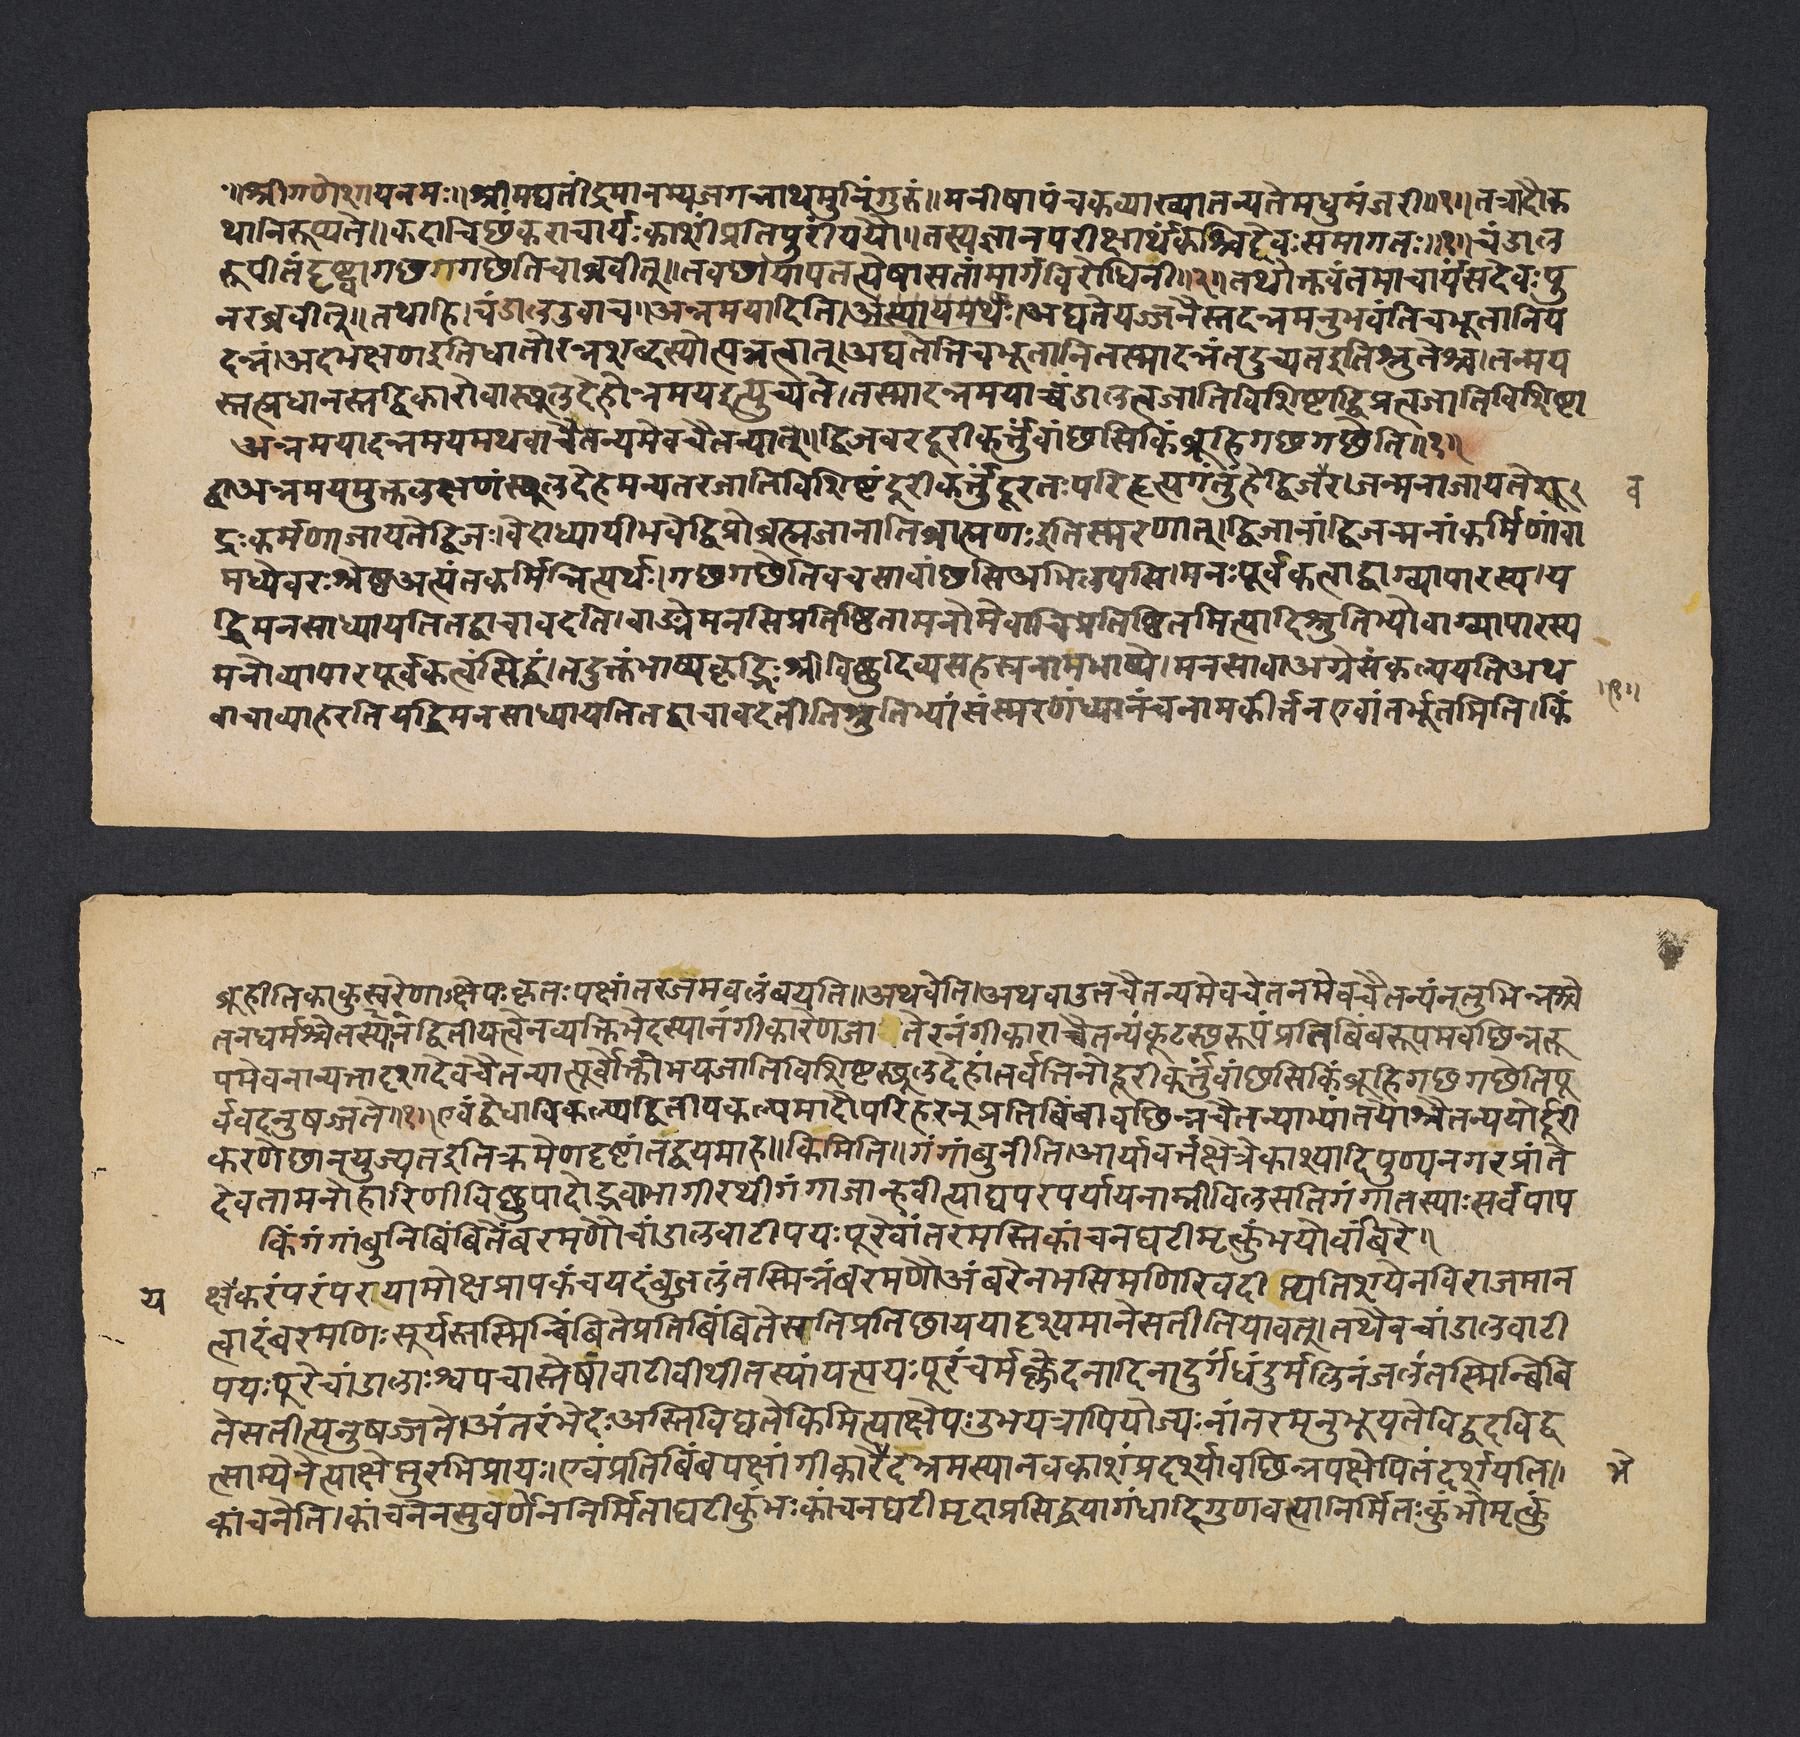 ॥श्रीगणेशायनमः॥श्रीमद्यतींद्रमानम्यजगन्नाथमुनिंगुरुं॥मनीषापंचकव्याख्यातन्यतेमधुमंजरी॥१॥तत्रादौक
थानिरूप्यते॥कदाचिछंकराचार्यःकाशींप्रतिपुरींययौ॥तस्यज्ञानपरीक्षार्थंकश्चिद्देवःसमागतः॥१॥चंडाल
रूपीतंदृष्ट्वागछगगछेतिचाब्रवीत्॥तवछायापतत्येषासतांमार्गविरोधिनी॥२॥तथोक्तवंतमाचार्यंसदेवःपु
नरब्रवीत्॥तथाहि।चंडालउवाच॥अन्नमयादिति।अस्यायमर्थः।अद्यतेयज्जनैस्तदन्नमनुभवंतिचभूतानिय
दन्नं।अदभक्षणइतिधातोरन्नशब्दस्योत्पन्नत्वात्।अद्यतेत्तिचभूतानितस्मादन्नंतदुच्यतइतिश्रुतेश्च।तन्मय
स्तत्प्रधानस्तद्विकारोवास्थूलदेहोन्नमयइत्युच्यते।तस्मादन्नमयाच्चंडालत्वजातिविशिष्टाद्विप्रत्वजातिविशिष्टा
अन्नमयादन्नमयमथवाचैतन्यमेवचैतन्यात्॥द्विजवरदूरीकर्त्तुंवांछसिकिंब्रूहिगछगछेति॥१॥
द्वाअन्नमयमुक्तलक्षणंस्थूलदेहमन्यतरजातिविशिष्टंदूरीकर्त्तुंदूरतःपरिहृत्यगंतुंहेद्विजर।जन्मनाजायतेशू व
द्रःकर्मणाजायतेद्विजः।वेदाध्यायीभवेद्विप्रोब्रह्मजानातिब्राह्मणःइतिस्मरणात्।द्विजानांद्विजन्मनांकर्मिणांवा
मध्येवरःश्रेष्ठअत्यंतकर्मिन्नित्यर्थः।गछगछेतिवचसावांछसिअभिलषसि।मनःपूर्वकत्वाद्वाग्व्यापारस्य।य
द्धिमनसाध्यायतितद्वाचावदति।वाङ्मेमनसिप्रतिष्ठितामनोमेवाचिप्रतिष्ठितमित्यादिश्रुतिभ्योवाग्व्यापारस्य
मनोव्यापारपूर्वकत्वंसिद्धं।तदुक्तंभाष्यकृद्भिःश्रीविष्णुदिव्यसहस्रनामभाष्ये।मनसावाअग्रेसंकल्पयतिअथ
वाचाव्याहरतियद्धिमनसाध्यायतितद्वाचावदतीतिश्रुतिभ्यांसंस्मरणंध्यानंचनामकीर्त्तनएवांतर्भूतमिति।किं ॥१॥
ब्रूहीतिकाकुस्वरेणाक्षेपःकृतःपक्षांतरजमवलंबयति॥अथवेति।अथवाउतचैतन्यमेवचेतनमेवचैतन्यंनतुभिन्नश्चे
तनधर्मश्चैतस्यद्वितीयत्वेनव्यक्तिभेदस्यानंगीकारेणजा तेरनंगीकाराच्चैतन्यंकूटस्थरूपंप्रतिबिंबरूपमवछिन्नरू
पमेवनान्यत्तादृशादेवचैतन्यात्पूर्वोक्तोभयजातिविशिष्टस्थूलदेहांतर्वर्त्तिनोदूरीकर्त्तुंवांछसिकिंब्रूहिगछगछेतिपू
र्ववदनुषज्जते॥१॥एवंद्वेधाविकल्प्यद्वितीयकल्पमादौपरिहरन्प्रतिबिंबावछिन्नचैतन्याभ्यांतयोश्चैतन्ययोर्दूरी
करणेछानयुज्यतइतिक्रमेणदृष्टांतद्वयमाह॥किमिति॥गंगांबुनीति।आर्यावर्त्तक्षेत्रेकाश्यादिपुण्यनगरप्रांते
देवतामनोहारिणीविष्णुपादोद्भवाभागीरथीगंगाजान्हवीत्याद्यपरपर्यायनाम्नीविलसतिगंगातस्याःसर्वपाप
किंगंगांबुनिबिंबितेंबरमणौचांडालवाटीपयःपूरेवांतरमस्तिकांचनघटीमृत्कुंभयोर्वांबरे॥
य क्षैकरंपरंपरयामोक्षप्रापकंचयदंबुजलंतस्मिन्नंबरमणौअंबरेनभसिमणिरिवदी प्यतिशयेनविराजमान
त्वादंबरमणिःसूर्यस्तस्मिन्बिंबितेप्रतिबिंबितेसतिप्रतिछाययादृश्यमानेसतीतियावत्।तथैवचांडालवाटी
पयःपूरेचांडालाःश्वपचास्तेषांवाटीवीथीतस्यांयत्पयःपूरंचर्मक्लेदनादिनादुर्गंधंदुर्मलिनंजलंतस्मिन्बिंबि
तेसतीत्यनुषज्जते।अंतरंभेदःअस्तिविद्यतेकिमित्याक्षेपःउभयत्रापियोज्यःनांतरमनुभूयतेविद्वदविद्व
त्साम्येनेत्याक्षेप्तुरभिप्रायः।एवंप्रतिबिंबपक्षांगीकारेदभ्रमस्यानवकाशंप्रदर्श्यावछिन्नपक्षेपितंदर्शयति॥ भे
कांचनेति।कांचनेनसुवर्णेननिर्मिताघटीकुंभःकांचनघटीमृदाप्रसिद्धयागंधादिगुणवत्यानिर्मितःकुंभोमृत्कुं